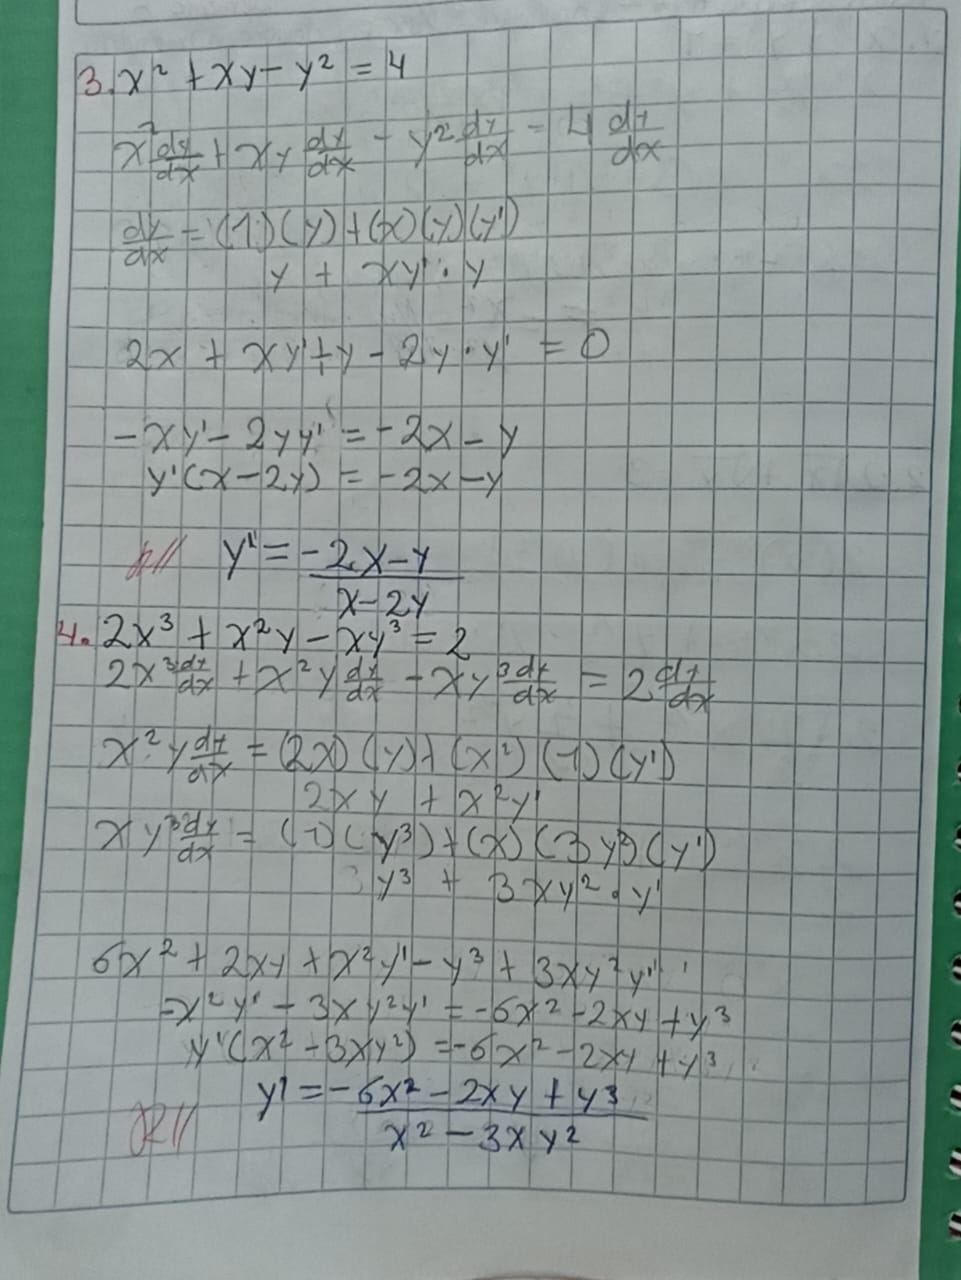 3. x² + xy - y² = 4
x² dy/dx + xy dy/dx - y² dy/dx = 4 dy/dx
dy/dx = (1)(y) + (x)(y)(y')
y + xy' · y
2x + xy' + y - 2y · y' = 0
- xy' - 2yy' = -2x - y
y'(x - 2y) = -2x - y
R// y' = -2x - y / x - 2y
4. 2x³ + x²y - xy³ = 2
2x³ dy/dx + x²y dy/dx - xy³ dy/dx = 2 dy/dx
x²y dy/dx = (2x)(y) + (x²)(1)(y')
2xy + x²y'
xy³ dy/dx = (1)(y³) + (x)(3y²)(y')
y³ + 3xy² · y'
6x² + 2xy + x²y' - y³ + 3xy²y'
= x²y' - 3xy²y' = -6x² - 2xy + y³
y'(x² - 3xy²) = -6x² - 2xy + y³
R// y' = -6x² - 2xy + y³ / x² - 3xy²